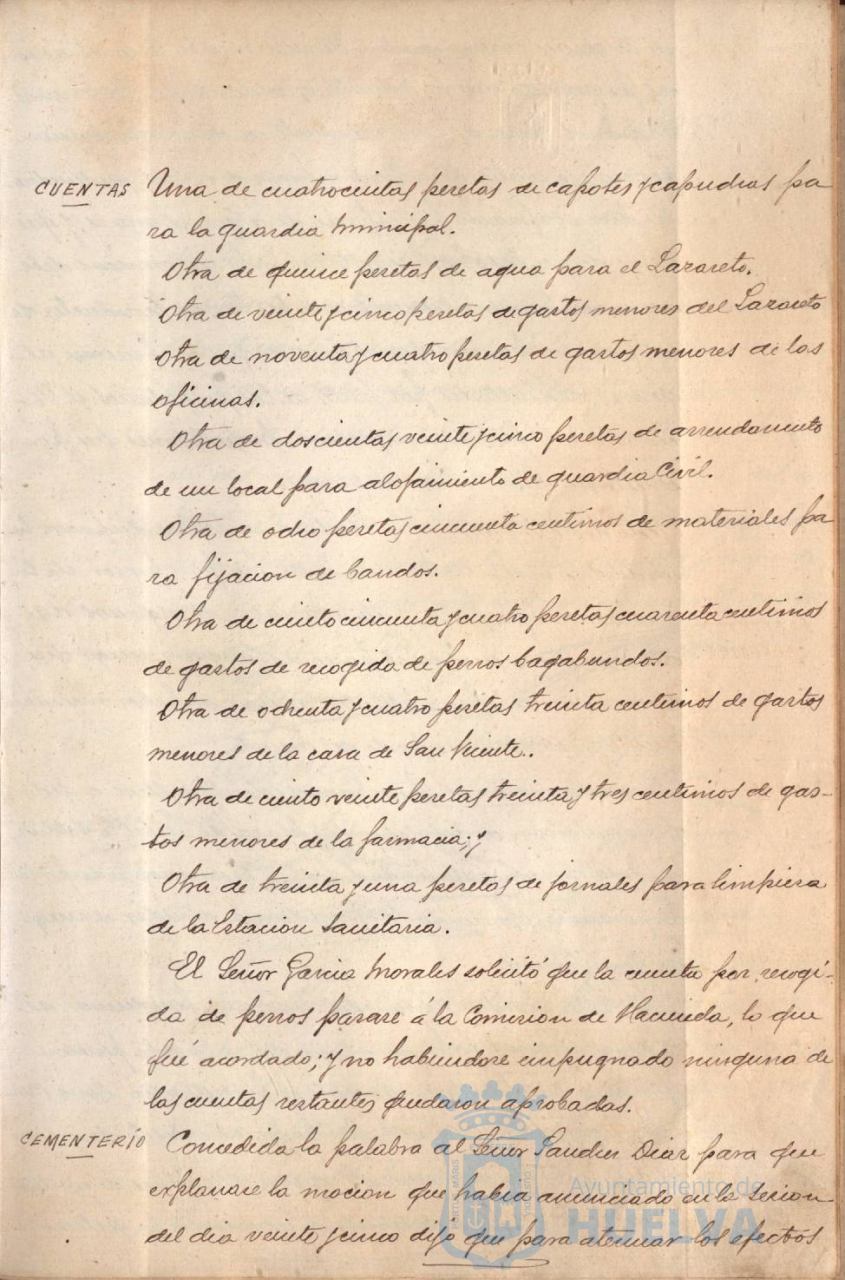 CUENTAS Una de cuatrocientas pesetas de capotes y capuchas pa
ra la guardia municipal.
Otra de quince pesetas de agua para el Lazareto.
Otra de veinte y cinco pesetas de gastos menores del Lazareto
Otra de noventa y cuatro pesetas de gastos menores de las
oficinas.
Otra de doscientas veinte y cinco pesetas de arrendamiento
de un local para alojamiento de guardia Civil.
Otra de ocho pesetas cincuenta centimos de materiales pa
ra fijacion de bandos.
Otra de ciento cincuenta y cuatro pesetas cuarenta centimos
de gastos de recogida de perros bagabundos.
Otra de ochenta y cuatro pesetas treinta centimos de gastos
menores de la casa de San Vicente..
Otra de ciento veinte pesetas treinta y tres centimos de gas-
tos menores de la farmacia; y
Otra de treinta y una pesetas de jornales para limpieza
de la Estacion Sanitaria.
El Señor Garcia Morales solicitó que la cuenta por recogi-
da de perros pasase á la Comision de Hacienda, lo que
fué acordado; y no habiendose impugnado ninguna de
las cuentas restantes quedaron aprobadas.
CEMENTERIO Concedida la palabra al Señor Sanchez Diaz para que
explanase la mocion que habia anunciado en la sesion
del dia veinte y cinco dijo que para atenuar los efectos
Ayuntamiento de
HUELVA